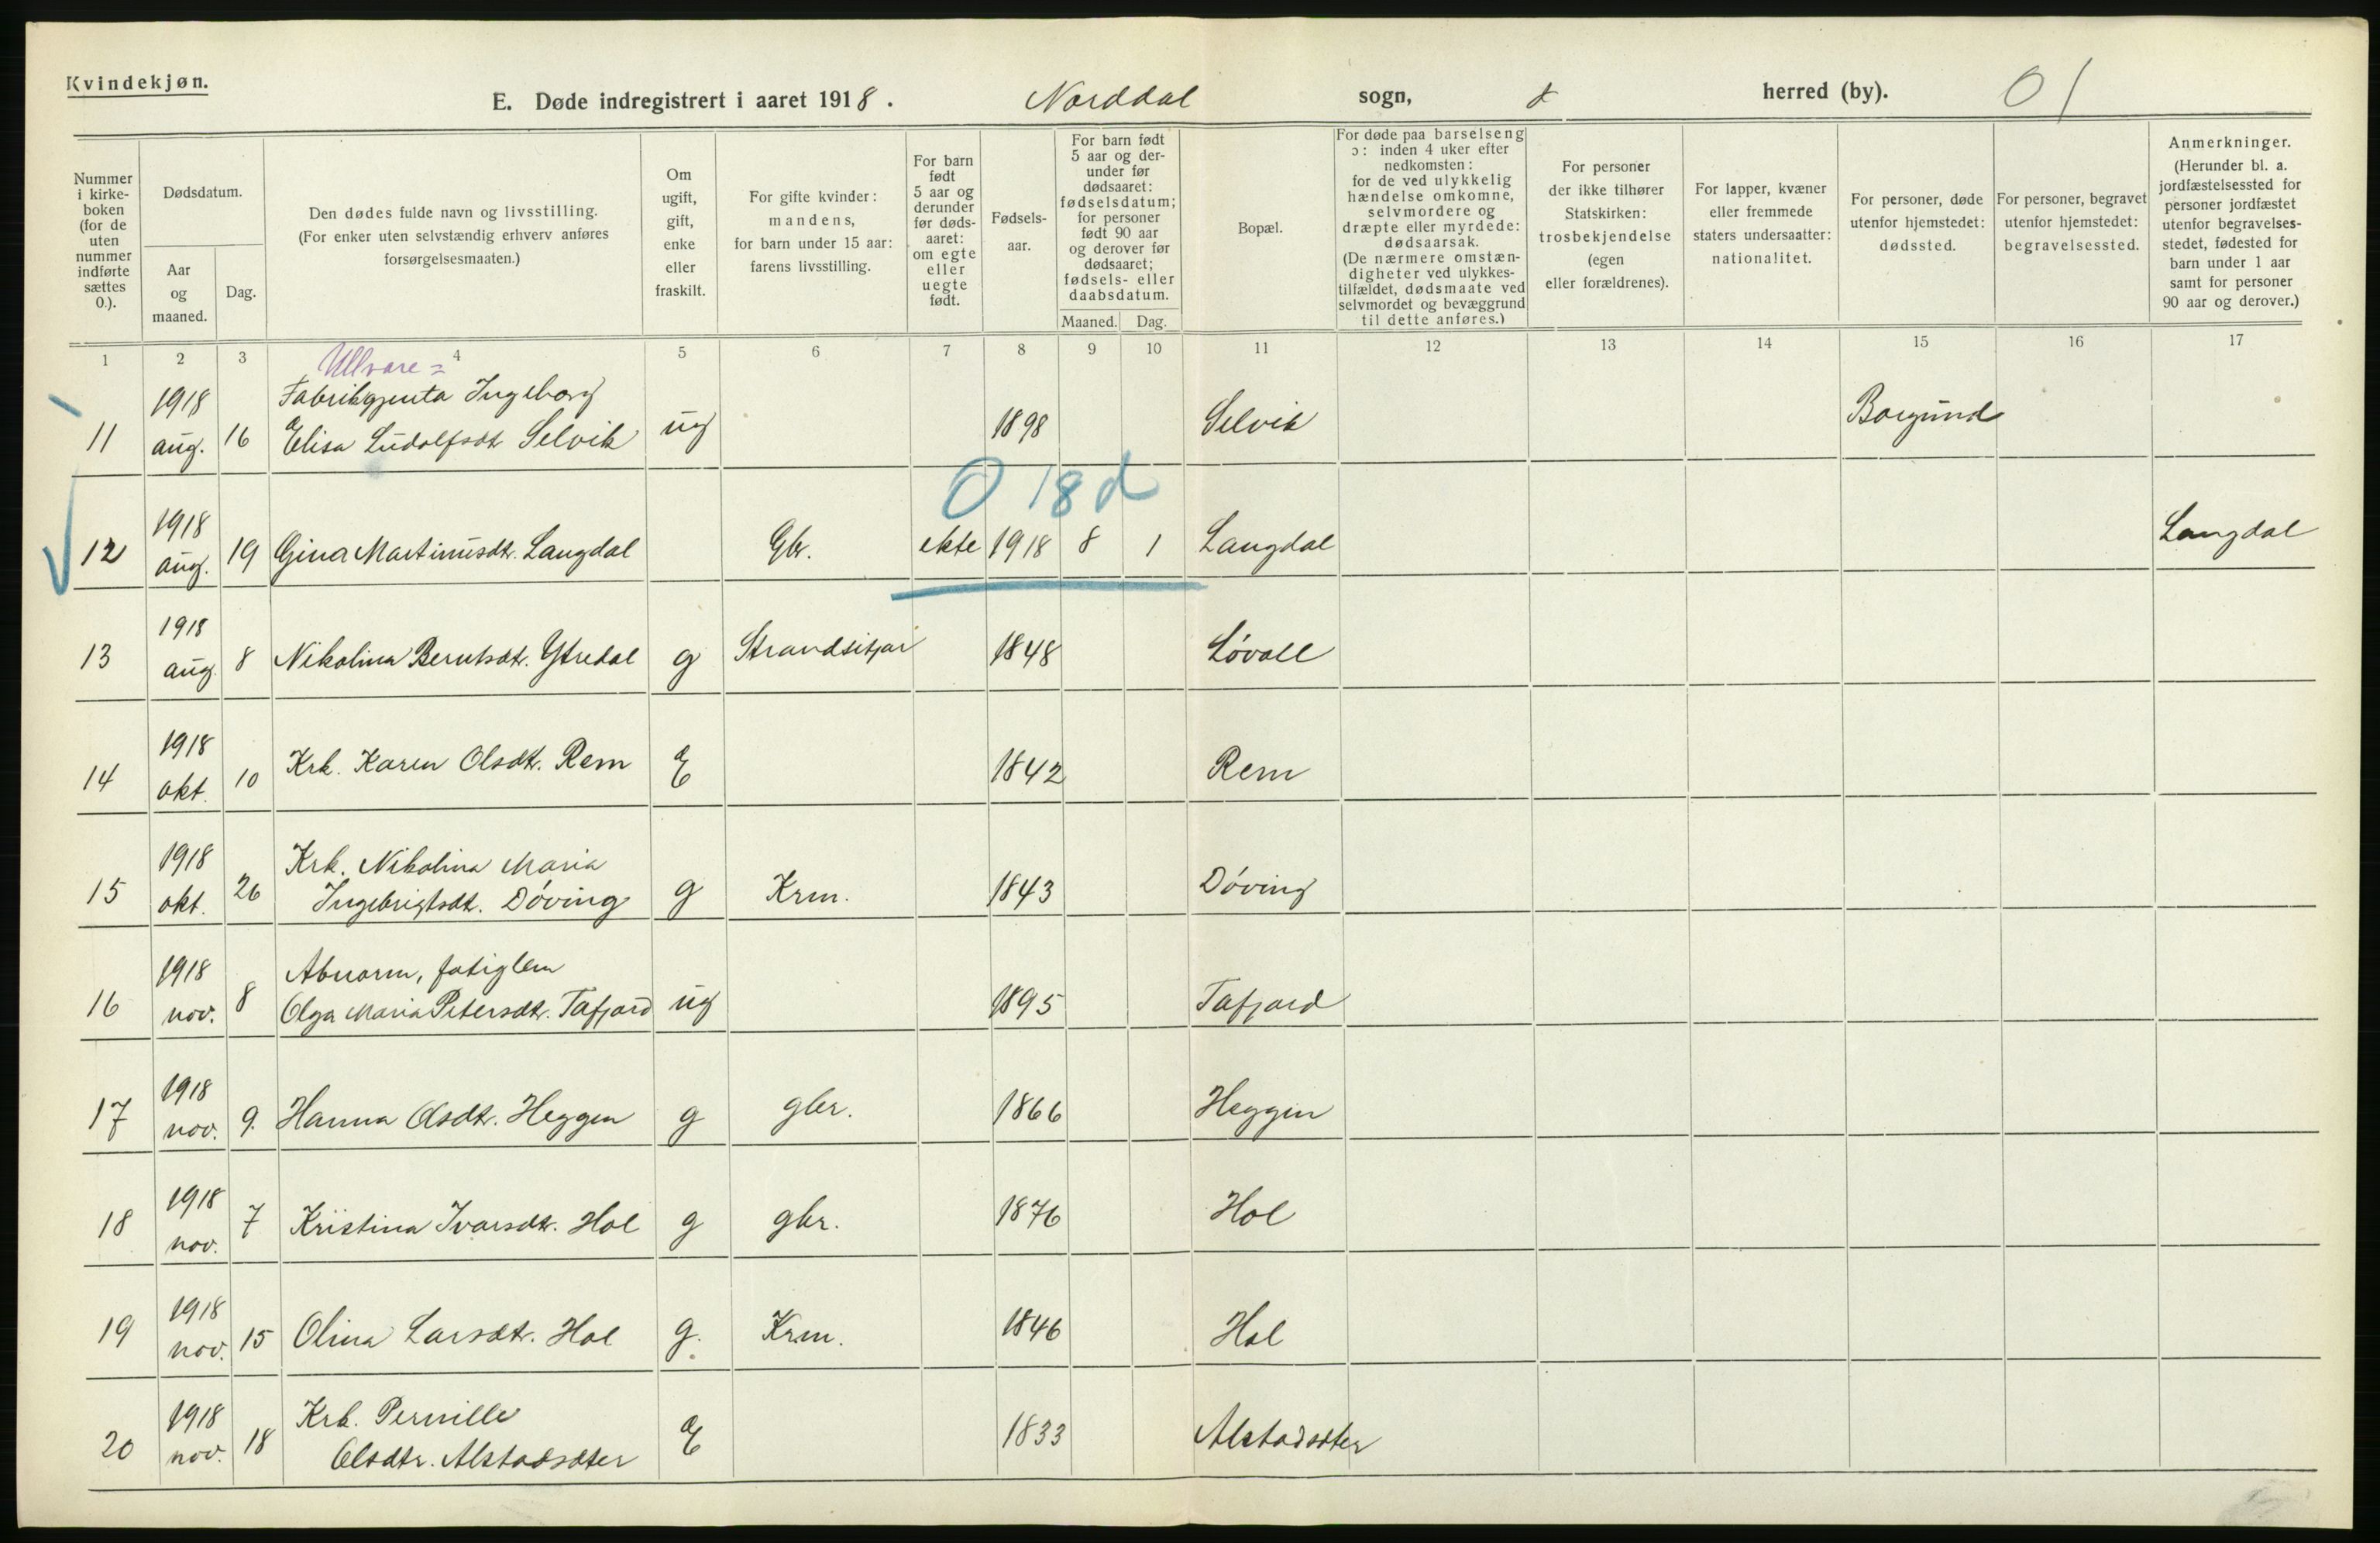 Kvindekjøn.
E. Døde indregistrert i aaret 1918. Norddal sogn, herred (by). 01
Nummer i kirkeboken (for de uten nummer indførte sættes 0.).
Dødsdatum.
Aar og maaned.
Dag.
Den dødes fulde navn og livsstilling.
(For enker uten selvstændig erhverv anføres forsørgelsesmaaten.)
Om ugift, gift, enke eller fraskilt.
For gifte kvinder: mandens, for barn under 15 aar: farens livsstilling.
For barn født 5 aar og derunder før dødsaaret: om egte eller uegte født.
Fødselsaar.
For barn født 5 aar og derunder før dødsaaret: fødselsdatum; for personer født 90 aar og derover før dødsaaret; fødsels- eller daabsdatum.
Maaned. Dag.
Bopæl.
For døde paa barselseng ɔ: inden 4 uker efter nedkomsten: for de ved ulykkelig hændelse omkomne, selvmordere og dræpte eller myrdede: dødsaarsak. (De nærmere omstændigheter ved ulykkestilfældet, dødsmaate ved selvmordet og bevæggrund til dette anføres.)
For personer der ikke tilhører Statskirken: trosbekjendelse (egen eller forældrenes).
For lapper, kvæner eller fremmede staters undersaatter: nationalitet.
For personer, døde utenfor hjemstedet: dødssted.
For personer, begravet utenfor hjemstedet: begravelsessted.
Anmerkninger. (Herunder bl. a. jordfæstelsessted for personer jordfæstet utenfor begravelsesstedet, fødested for barn under 1 aar samt for personer 90 aar og derover.)
1 2 3 4 5 6 7 8 9 10 11 12 13 14 15 16 17
Ullvare=
11 1918 aug. 16 Fabrikgjenta Ingeborg Elisa Ludolfsdt. Selvik ug 1898 Selvik Borgund
0 18 d
12 1918 aug. 19 Gina Martinusdt. Langdal Gbr. ekte 1918 8 1 Langdal Langdal
13 1918 aug. 8 Nikolina Berntsdt. Ytredal g Strandsitjar 1848 Løvoll
14 1918 okt. 10 Krk. Karen Olsdt. Rem E 1842 Rem
15 1918 okt. 26 Krk. Nikolina Maria Ingebrigtsdt. Døving g Krm. 1843 Døving
16 1918 nov. 8 Abnorm, fatiglem Olga Maria Petersdt. Tafjord ug 1895 Tafjord
17 1918 nov. 9. Hanna Olsdt. Heggen g gbr. 1866 Heggen
18 1918 nov. 7 Kristina Ivarsdt. Hol g gbr. 1876 Hol
19 1918 nov. 15 Olina Larsdt. Hol g. Krm. 1846 Hol
20 1918 nov. 18 Krk. Pernille Olsdtr. Alstadsæter E 1833 Alstadsæter